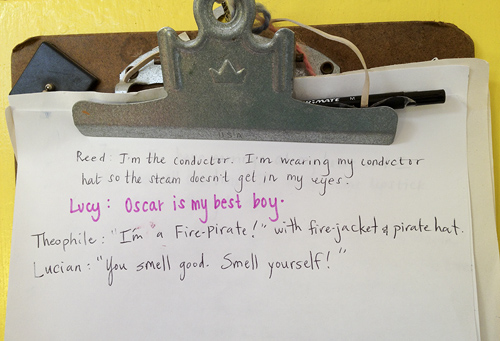 Reed: I'm the conductor. I'm wearing my conductor
hat so the steam doesn't get in my eyes.
Lucy: Oscar is my best boy.
Theophile: "I'm a Fire-Pirate!" with fire-jacket & pirate hat.
Lucian: "You smell good. Smell yourself!"